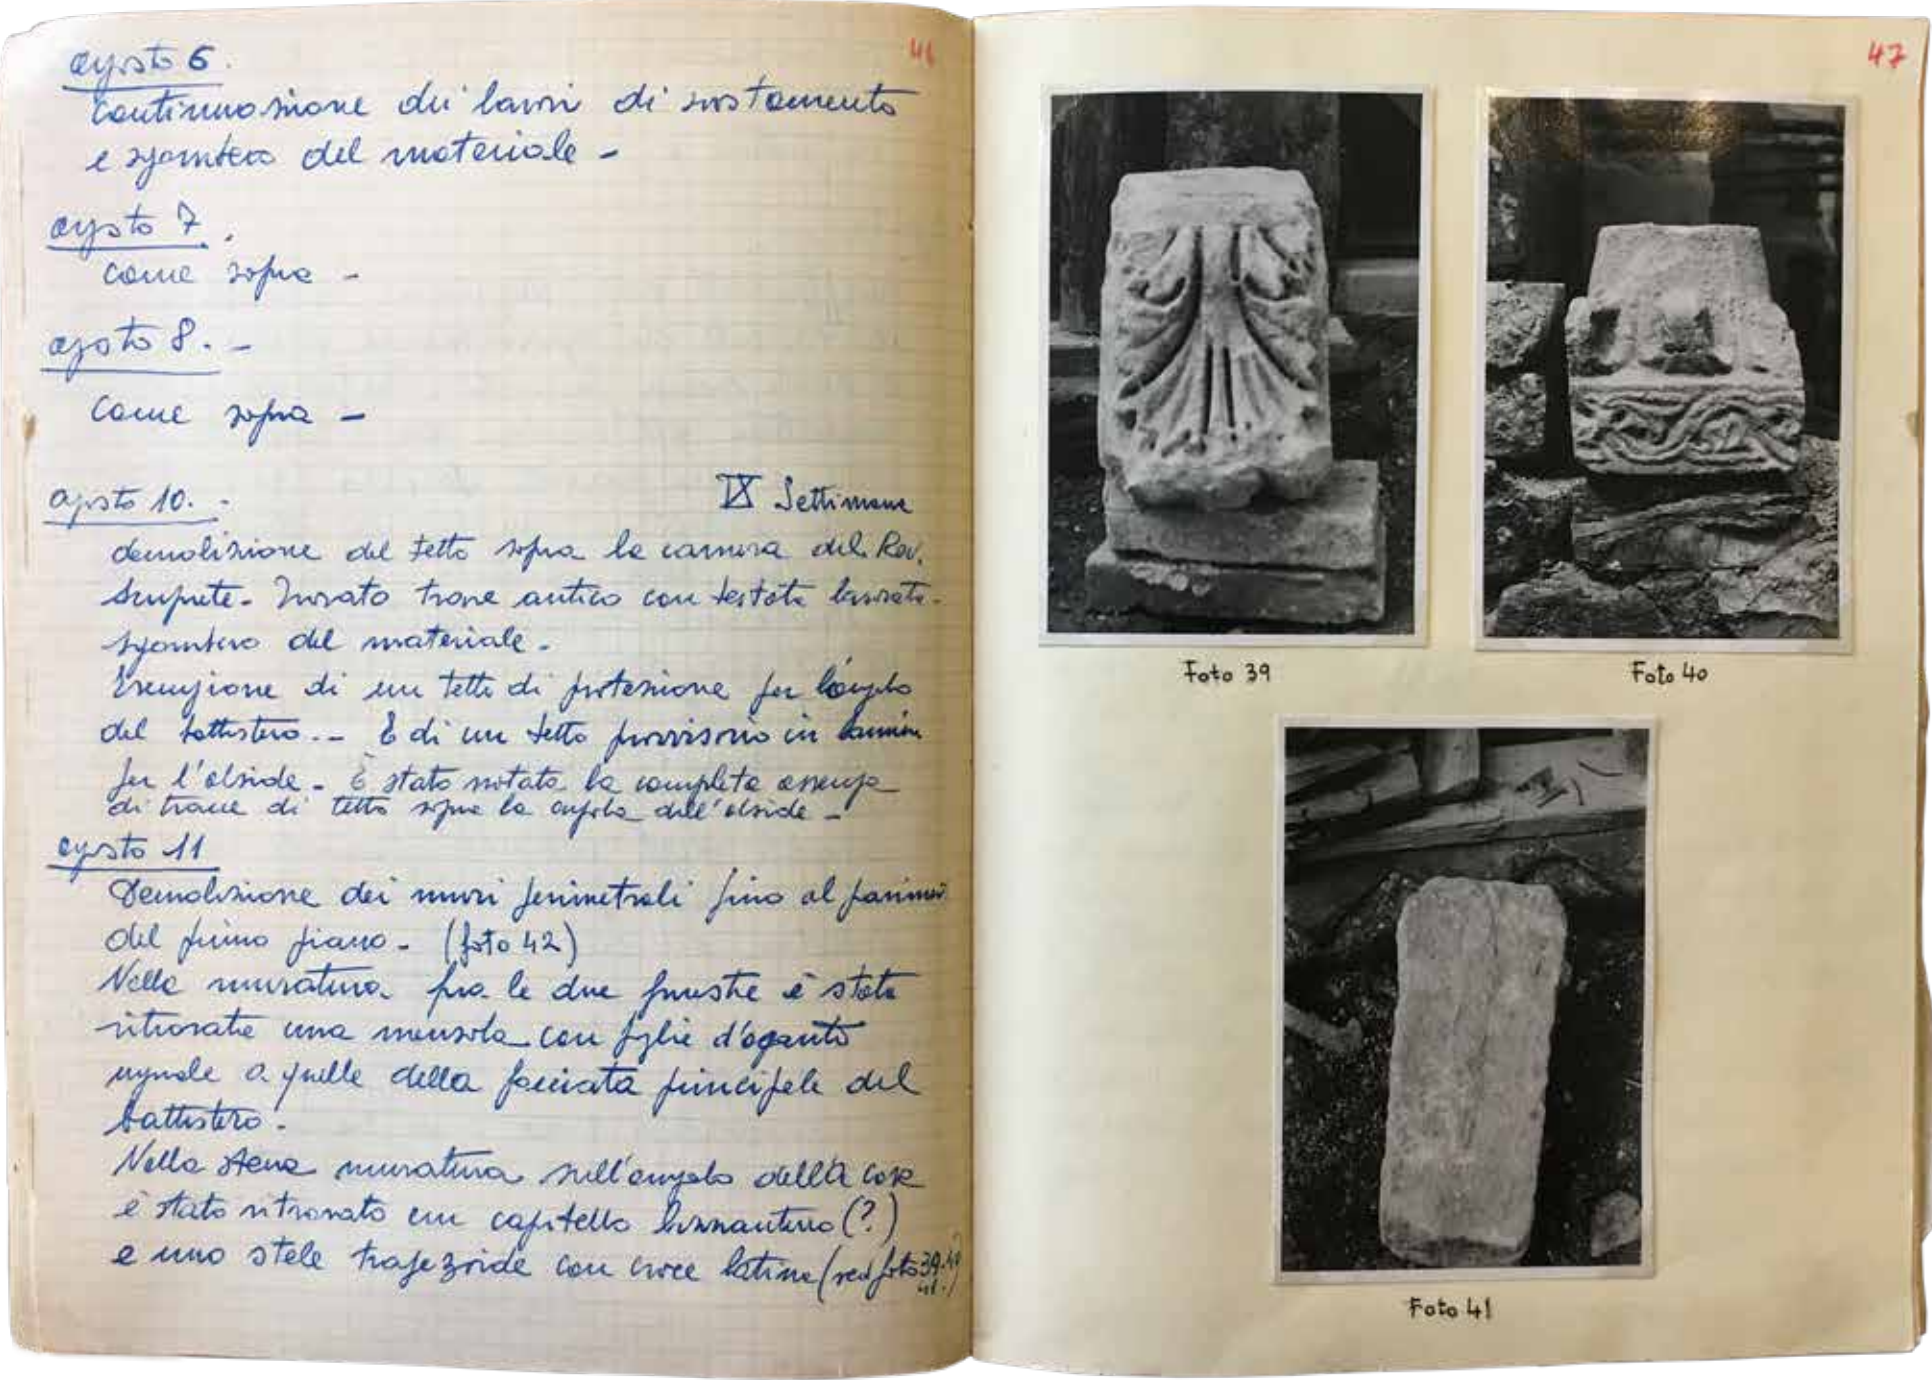 46
agosto 6.
Continuazione dei lavori di svostamento
e sgombero del materiale -
agosto 7.
Come sopra -
agosto 8. -
Come sopra -
agosto 10. -
IX Settimana
demolizione del tetto sopra la camera del Rev.
Arciprete - Trovato trave antico con testata lavorata -
sgombero del materiale -
Esecuzione di un tetto di protezione per l'angolo
del battistero. - E di un tetto provvisorio in lamiera
per l'abside - È stato notata la completa assenza
di tracce di tetto sopra la cupola dell'abside -
agosto 11
Demolizione dei muri perimetrali fino al pavimen
del primo piano - (foto 42)
Nella muratura fra le due finestre è stata
ritrovata una mensola con foglie d'aganto
uguale a quelle della facciata principale del
battistero -
Nella stessa muratura sull'angolo della casa
è stato ritrovato un capitello bizzantino (?)
e uno stele trapezoide con croce latina (vedi foto 39-40
41.)
47
Foto 39
Foto 40
Foto 41